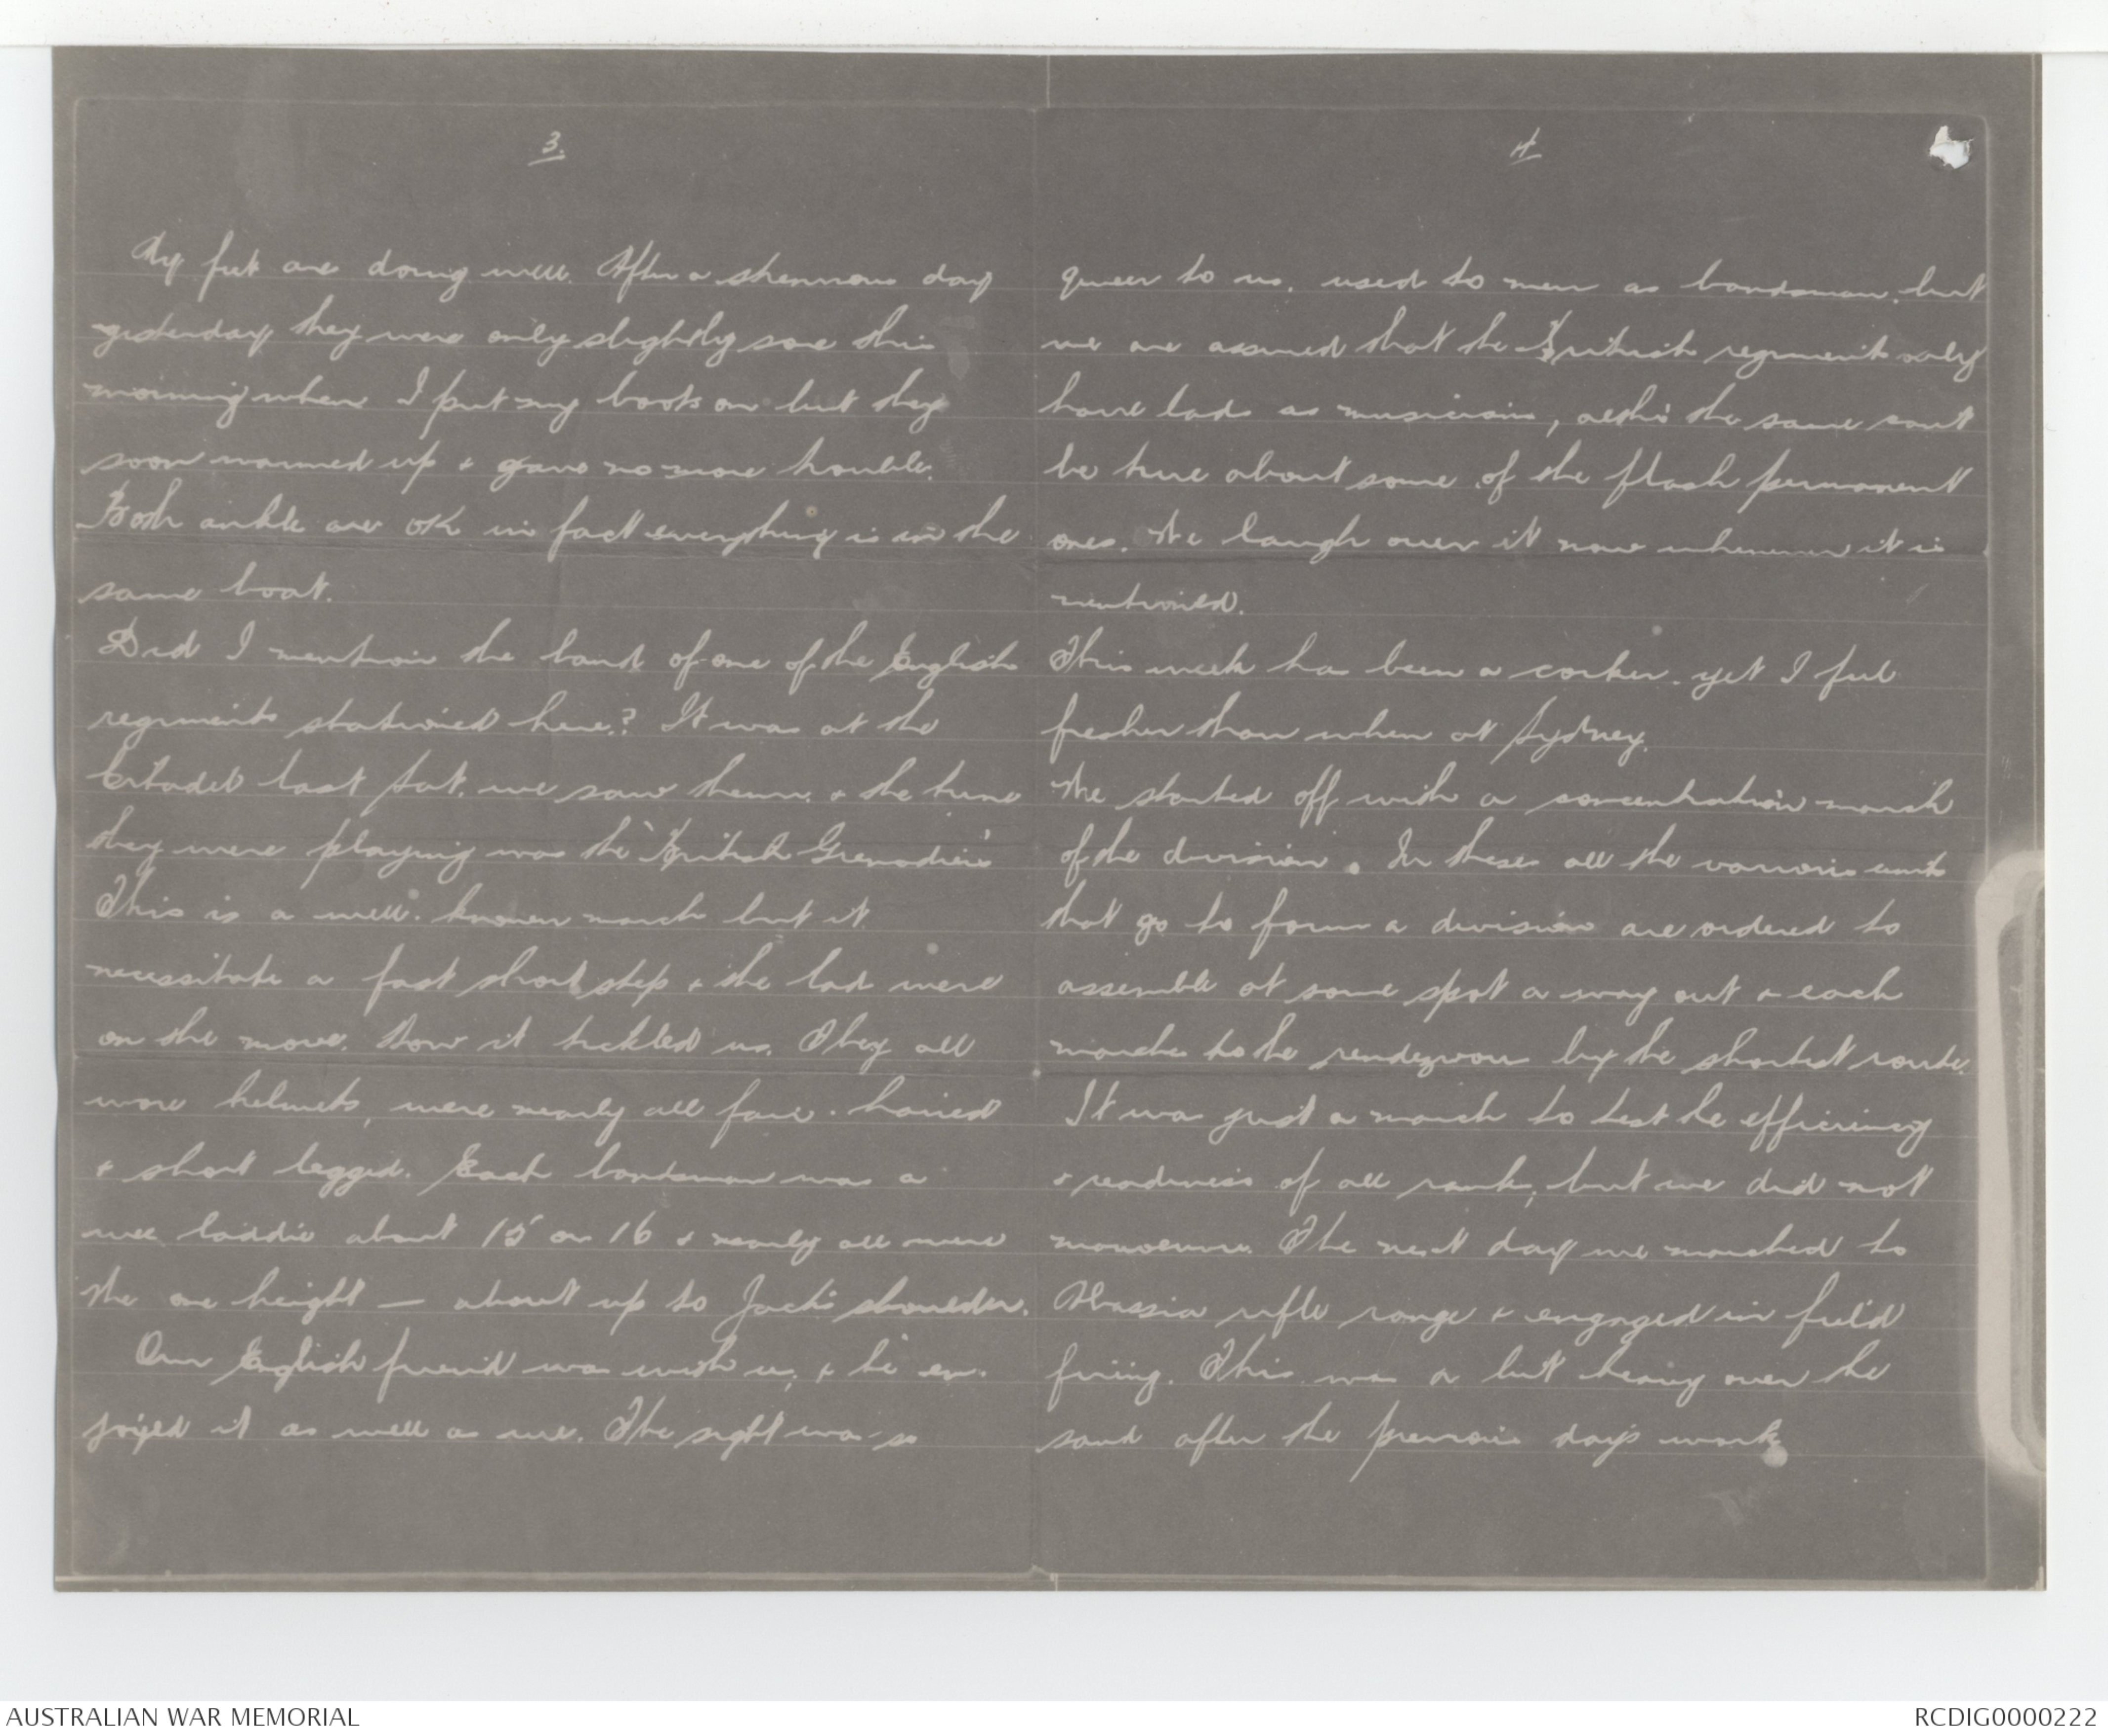 3.
My feet are doing well. After a strenuous day
yesterday they were only slightly sore this
morning when I put my boots on but they
soon warmed up & gave no more trouble.
Both ankles are OK in fact everything is in the
same boat.
Did I mention the band of one of the English
regiments stationed here? It was at the
Citadel last Sat. we saw them, & the tune
they were playing was the "British Grenadiers"
This is a well-known march but it
necessitates a fast short step & the lads were
on the move. How it tickled us. They all
wore helmets, were nearly all fair-haired
& short legged. Each bandsman was a
wee laddie about 15 or 16 & nearly all were
the one height — about up to Jack's shoulder.
Our English friend was with us, & he en-
joyed it as well as we. The sight was so
4
queer to us, used to men as bandsmen, but
we are assured that the British regiments only
have lads as musicians, altho the same can't
be true about some of the flash permanent
ones. We laugh over it now whenever it is
mentioned.
This week has been a corker yet I feel
fresher than when at Sydney.
We started off with a concentration march
of the division. In these all the various units
that go to form a division are ordered to
assemble at some spot a way out & each
marches to the rendezvous by the shortest route.
It was just a march to test the efficiency
& readiness of all ranks, but we did not
manoeuvre. The next day we marched to
Abassia rifle range & engaged in field
firing. This was a bit heavy over the
sand after the previous days work
AUSTRALIAN WAR MEMORIAL
RCDIG0000222